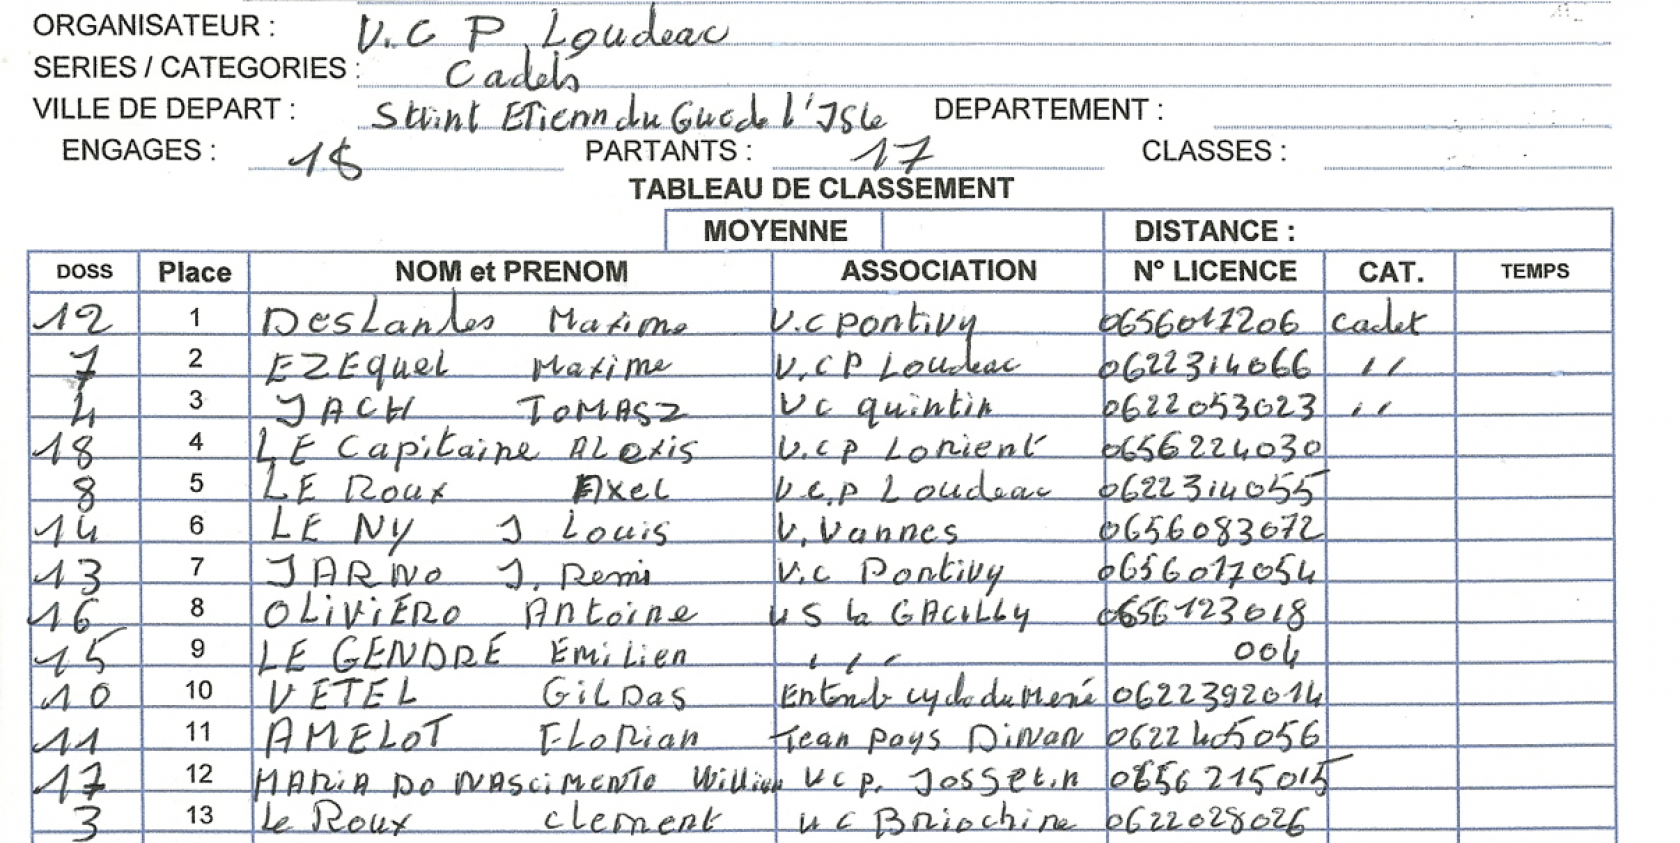 ORGANISATEUR : V.C P Loudeac
SERIES / CATEGORIES : Cadets
VILLE DE DEPART : Saint ETienn du Gué de l'Isle DEPARTEMENT :
ENGAGES : PARTANTS : 17 CLASSES :
TABLEAU DE CLASSEMENT
MOYENNE DISTANCE :
DOSS Place NOM et PRENOM ASSOCIATION N° LICENCE CAT. TEMPS
12 1 DesLandes Maxime V.C Pontivy 0656017206 Cadet
7 2 EZEquel Maxime V.C P Loudeac 0622314066 ''
4 3 JACH ToMASZ VC quintin 0622053023 ''
18 4 LE Capitaine ALexis V.C P Lorient 0656224030
8 5 LE Roux Axel V.C.P Loudeac 0622314055
14 6 LE NY J Louis V. Vannes 0656083072
13 7 JARNo J. Remi V.C Pontivy 0656017054
16 8 OLiViERO Antoine US la GACiLLY 0656123018
15 9 LE GENDRE Emilien ''' 004
10 10 VETEL GiLDas Entente cyclo du Mené 0622392014
11 11 AMELOT FLorian Team Pays Dinan 0622405056
17 12 MARiA Do NAsciMENTo William V C P. JosseLin 0656215015
3 13 Le Roux clement U C Briochine 0622028026